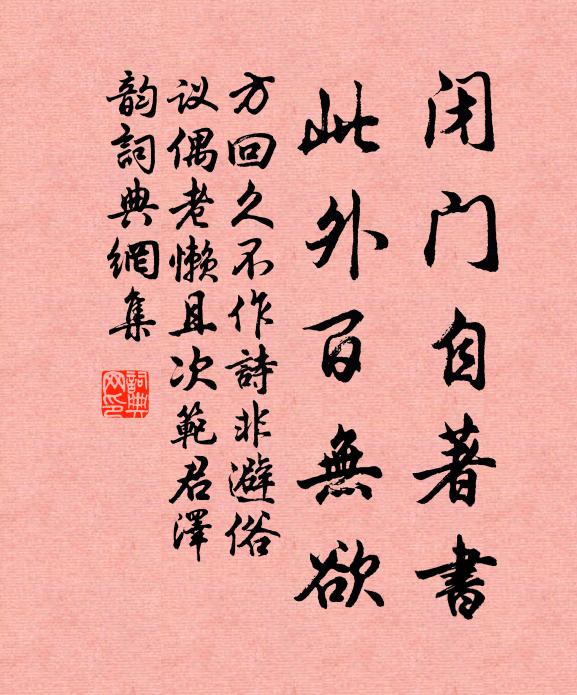 闭门自著書
此外百無欲
方回久不作詩非避俗
议偶老懒且次範君澤
韵詞典網集
詞典网印